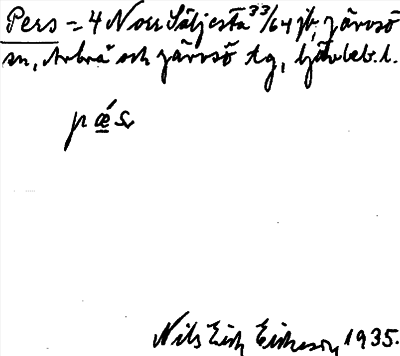 Pers = 4 Norr Säljesta 33/64 jb, Järvsö
sn, Arbrå och Järvsö tg, Gävleb. l.
pǽʂ
Nils Erik Eriksson 1935.